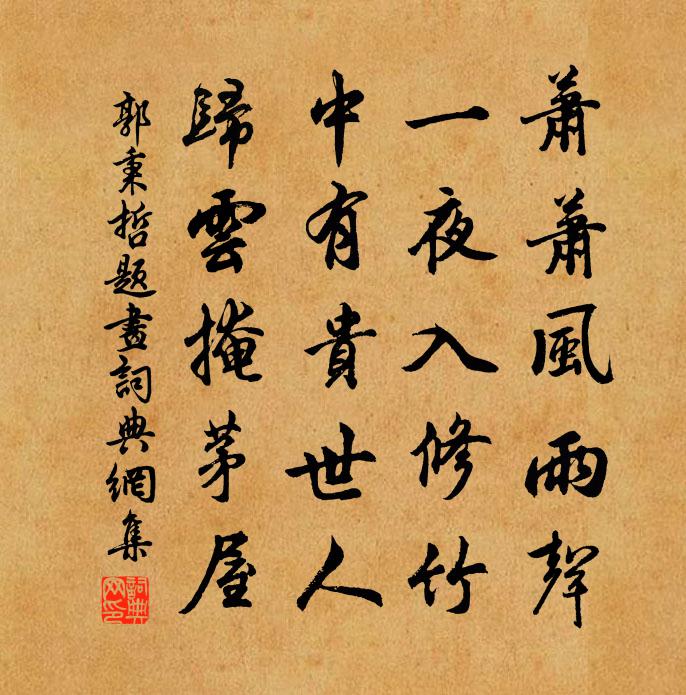 蕭蕭風雨聲
一夜入修竹
中有貴世人
歸雲掩茅屋
郭秉哲題畫詞典網集
詞典网印